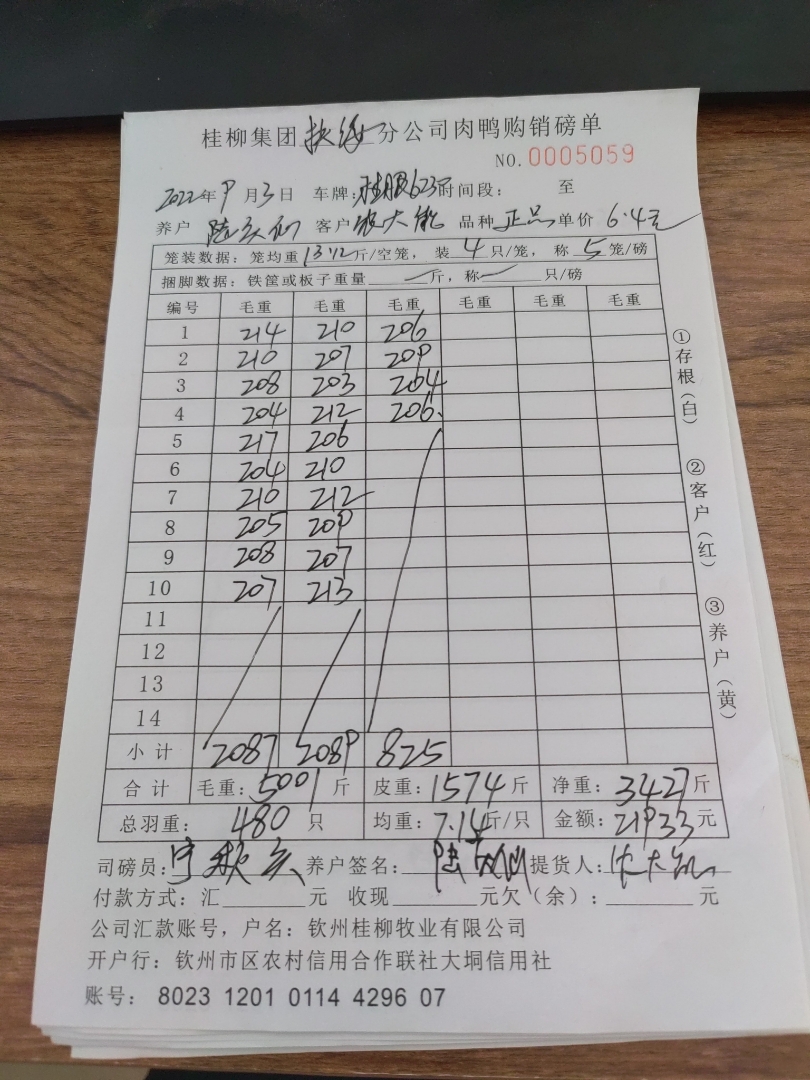 桂柳集团 分公司肉鸭购销磅单
NO. 0005059
2022年9月3日 车牌: 623 时间段: 至
养户 客户 大 品种 正品 单价 6.4元
笼装数据: 笼均重13.12斤/空笼, 装4只/笼, 称5笼/磅
捆脚数据: 铁筐或板子重量 — 斤, 称 — 只/磅
编号 毛重 毛重 毛重 毛重 毛重 毛重
1 214 210 206
2 210 207 209
3 208 203 204
4 204 212 206
5 217 206
6 204 210
7 210 212
8 205 209
9 208 207
10 207 213
11
12
13
14
小计 2087 2089 825
合计 毛重: 5001斤 皮重: 1574斤 净重: 3427斤
总羽重: 480只 均重: 7.14斤/只 金额: 21933元
司磅员: 养户签名: 提货人:
付款方式: 汇 元 收现 元欠(余): 元
公司汇款账号, 户名: 钦州桂柳牧业有限公司
开户行: 钦州市区农村信用合作联社大垌信用社
账号: 8023 1201 0114 4296 07
①存根(白)
②客户(红)
③养户(黄)